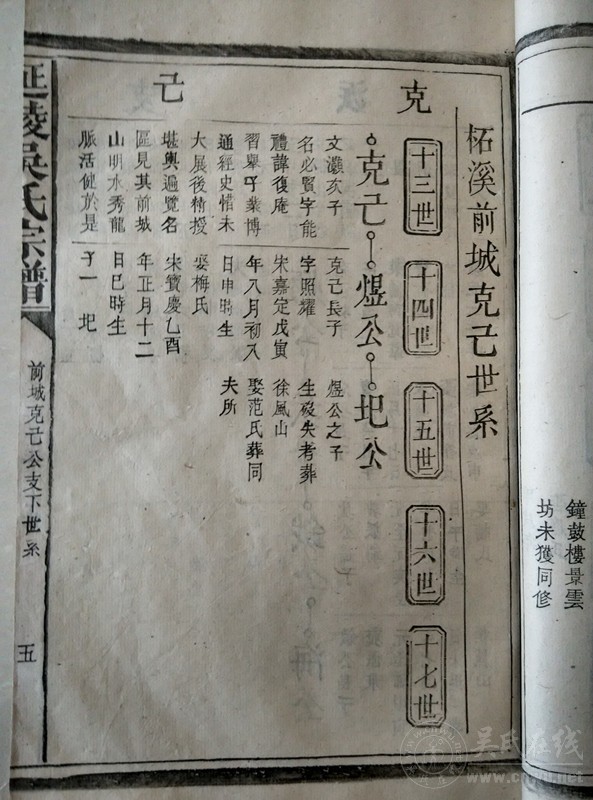 鐘鼓樓景雲
坊未獲同修
柘溪前城克己世系
克己
十三世
十四世
十五世
十六世
十七世
克己
煜公
圯公
文灝亥子
名必賢字能
禮諱復庵
習舉子業博
通經史惜未
大展後精授
堪輿遍覽名
區見其前城
山明水秀龍
脈活便於是
克己長子
字照耀
宋嘉定戊寅
年八月初八
日申時生
娶梅氏
宋寶慶乙酉
年正月十二
日巳時生
子一 圯
煜公之子
生歿失考葬
徐風山
娶范氏葬同
夫所
延陵吳氏宗譜
前城克己公支下世系
五
吴氏在线